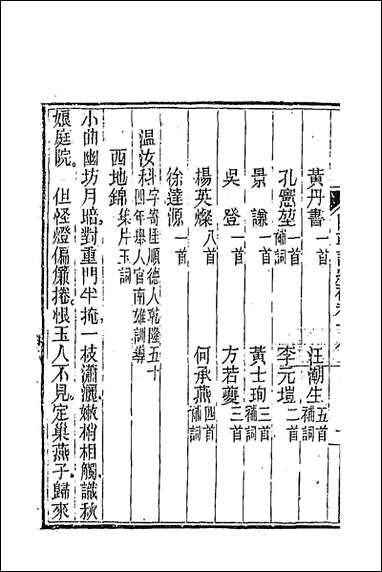 黃丹書一首
汪潮生五首補詞
孔憲堃一首補詞
李元塏二首
景謙一首
黃士珣三首補詞
吳登一首
方若蘷三首
楊英燦八首
何承燕四首補詞
徐達源一首
温汝科字菊隹順德人乾隆五十
四年舉人官南雄訓導
西地錦集片玉詞
小曲幽坊月暗對重門半掩一枝瀟灑嫩梢相觸識秋
娘庭院　但怪燈偏簾捲恨玉人不見定巢燕子歸來